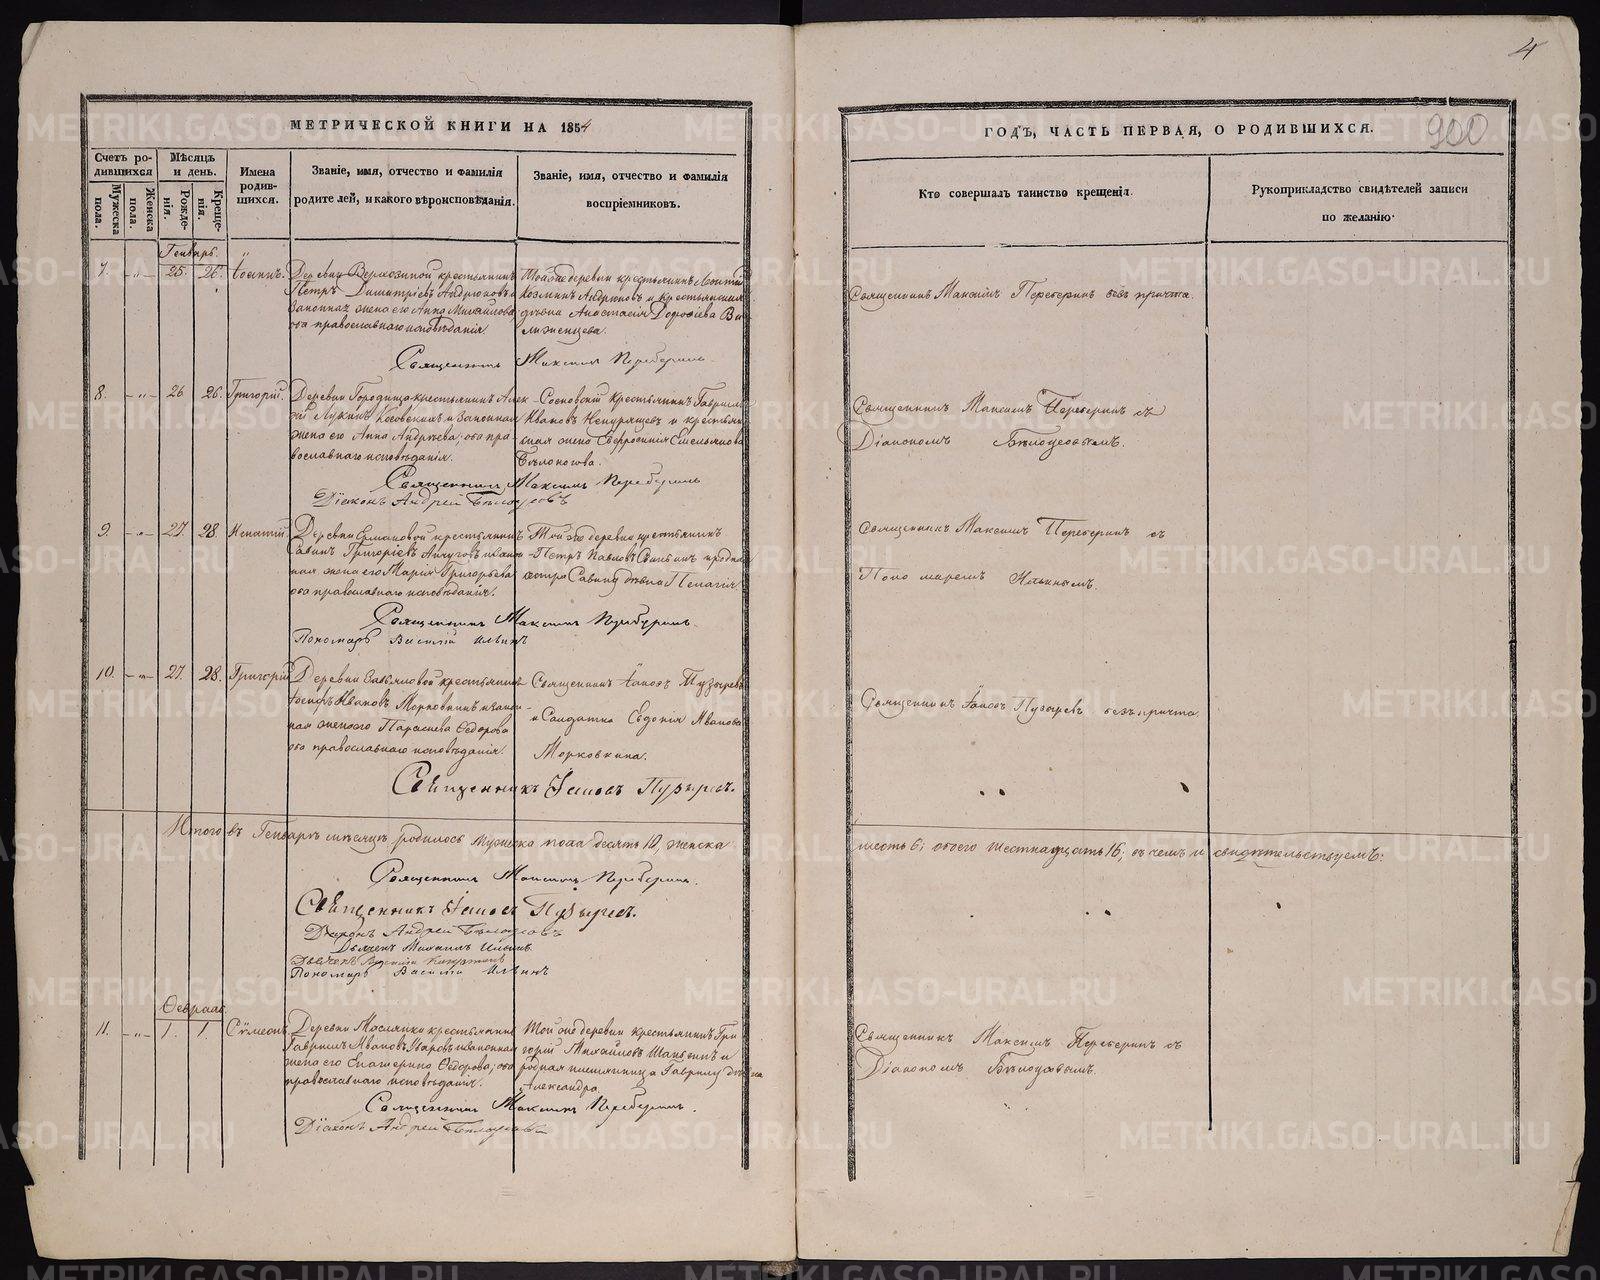 4
900
МЕТРИЧЕСКОЙ КНИГИ НА 1854
ГОДЪ, ЧАСТЬ ПЕРВАЯ, О РОДИВШИХСЯ.
Счетъ родившихся
Мужеска пола.
Женска пола.
Мѣсяцъ и день.
Рожденія.
Крещенія.
Имена родившихся.
Званіе, имя, отчество и фамилія
родителей, и какого вѣроисповѣданія.
Званіе, имя, отчество и фамилія
воспріемниковъ.
Кто совершалъ таинство крещенія.
Рукоприкладство свидѣтелей записи
по желанію.
Генварь.
7. 25. 26. Іоаннъ.
Петръ Димитріевъ Андрюковъ и
законная жена его Анна Михайлова
оба православнаго исповѣданія.
Той же деревни крестьянинъ
Козминъ Андрюковъ и крестьянская
дѣвка Анастасія Дорофіева
Священникъ Максимъ Переберинъ безъ причта.
Священникъ Максимъ Переберинъ.
8. 26 26. Григорій.
Деревни Городища крестьянинъ Алек-
сѣй Лукинъ и законная
жена его Анна Андрѣева, оба пра-
вославнаго исповѣданія.
Сосновскій крестьянинъ Гавриилъ
Ивановъ и крестьян-
ская жена Евфросинія Емельянова
Бѣлоногова.
Священникъ Максимъ Переберинъ съ
Діакономъ
Священникъ Максимъ Переберинъ
Діаконъ Андрей
9. 27. 28. Игнатій
Деревни Ермаковой крестьянинъ
Савинъ Григоріевъ и закон-
ная жена его Марія Григорьева
оба православнаго исповѣданія.
Той же деревни крестьянинъ
Петръ Павловъ и родная
сестра Савину дѣвка Пелагія.
Священникъ Максимъ Переберинъ съ
Пономаремъ Ильинымъ.
Священникъ Максимъ Переберинъ.
Пономарь Василій Ильинъ
10. 27. 28. Григорій
Деревни крестьянинъ
Іосифъ Ивановъ Морковкинъ и закон-
ная жена его Параскева Ѳедорова
оба православнаго исповѣданія.
Священникъ Іаковъ Пузыревъ
и Солдатка Евдокія Иванова
Морковкина.
Священникъ Іаковъ Пузыревъ безъ причта
Священникъ Іаковъ Пузыревъ.
Итого въ Генварѣ мѣсяцѣ родилось мужеска пола десять 10, женска
шесть 6; обоего шестнадцать 16; въ чемъ и свидѣтельствуемъ:
Священникъ Максимъ Переберинъ.
Священникъ Іаковъ Пузыревъ.
Діаконъ Андрей
Дьячекъ Михаилъ Ильинъ
Дьячекъ
Пономарь Василій Ильинъ
Февраль.
11. 1. 1. Сѵмеонъ
Деревни Маслянки крестьянинъ
Гавриилъ Ивановъ Уваровъ и законная
жена его Екатерина Ѳедорова; оба
православнаго исповѣданія.
Той же деревни крестьянинъ Гри-
горій Михайловъ и
родная племянница Гаврилу дѣвка
Александра
Священникъ Максимъ Переберинъ съ
Діакономъ
Священникъ Максимъ Переберинъ.
Діаконъ Андрей
METRIKI.GASO-URAL.RU